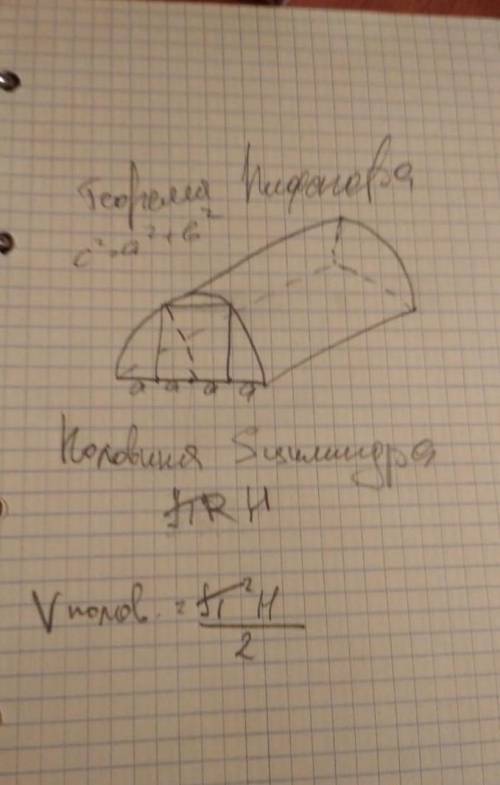 Теорема Пифагора
c²=a²+в²
a a a a
Половина Sцилиндра
πRH
Vполов. = π²H
2